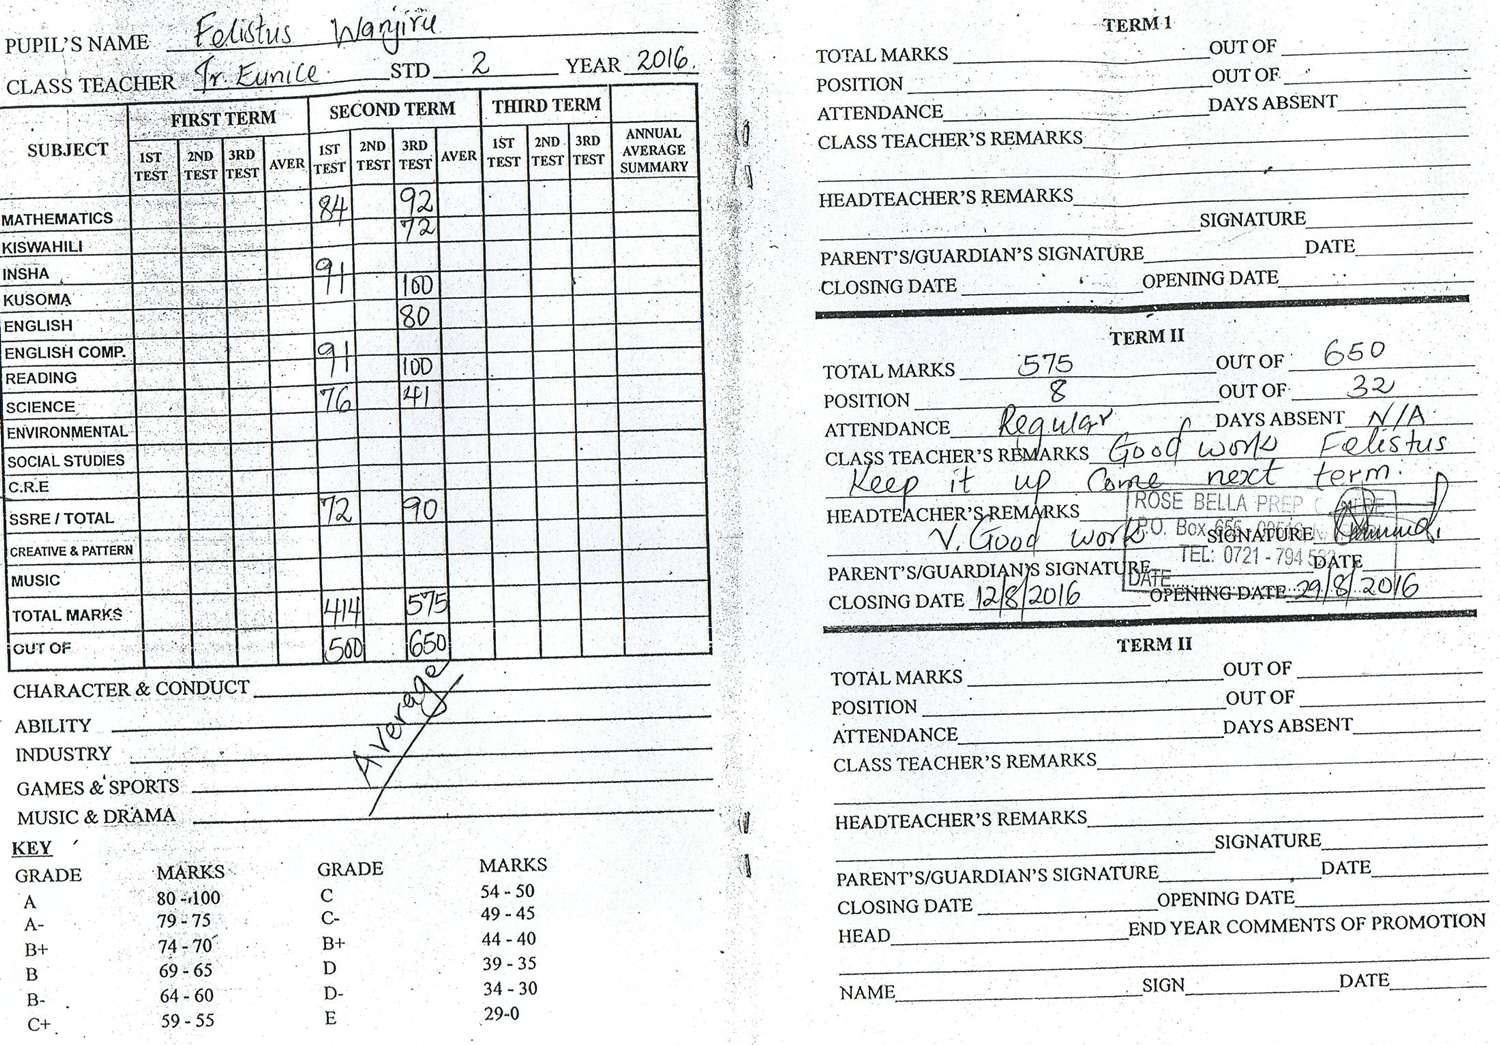 PUPIL'S NAME Felistus Wanjiru
CLASS TEACHER Tr. Eunice STD 2 YEAR 2016.
SUBJECT FIRST TERM SECOND TERM THIRD TERM ANNUAL AVERAGE SUMMARY
1ST TEST 2ND TEST 3RD TEST AVER 1ST TEST 2ND TEST 3RD TEST AVER 1ST TEST 2ND TEST 3RD TEST
MATHEMATICS 84 92
KISWAHILI 72
INSHA 91
KUSOMA 100
ENGLISH 80
ENGLISH COMP. 91
READING 100
SCIENCE 76 41
ENVIRONMENTAL
SOCIAL STUDIES
C.R.E
SSRE / TOTAL 72 90
CREATIVE & PATTERN
MUSIC
TOTAL MARKS 414 575
OUT OF 500 650
CHARACTER & CONDUCT
ABILITY
INDUSTRY
GAMES & SPORTS
MUSIC & DRAMA
Average
KEY
GRADE MARKS GRADE MARKS
A 80 - 100 C 54 - 50
A- 79 - 75 C- 49 - 45
B+ 74 - 70 B+ 44 - 40
B 69 - 65 D 39 - 35
B- 64 - 60 D- 34 - 30
C+ 59 - 55 E 29-0
TERM 1
TOTAL MARKS OUT OF
POSITION OUT OF
ATTENDANCE DAYS ABSENT
CLASS TEACHER'S REMARKS
HEADTEACHER'S REMARKS
SIGNATURE
PARENT'S/GUARDIAN'S SIGNATURE DATE
CLOSING DATE OPENING DATE
TERM II
TOTAL MARKS 575 OUT OF 650
POSITION 8 OUT OF 32
ATTENDANCE Regular DAYS ABSENT N/A
CLASS TEACHER'S REMARKS Good work Felistus
Keep it up Come next term.
HEADTEACHER'S REMARKS
V. Good work SIGNATURE
ROSE BELLA PREP
P.O. Box
TEL: 0721 - 794
DATE
PARENT'S/GUARDIAN'S SIGNATURE DATE
CLOSING DATE 12/8/2016 OPENING DATE 29/8/2016
TERM II
TOTAL MARKS OUT OF
POSITION OUT OF
ATTENDANCE DAYS ABSENT
CLASS TEACHER'S REMARKS
HEADTEACHER'S REMARKS
SIGNATURE
PARENT'S/GUARDIAN'S SIGNATURE DATE
CLOSING DATE OPENING DATE
HEAD END YEAR COMMENTS OF PROMOTION
NAME SIGN DATE